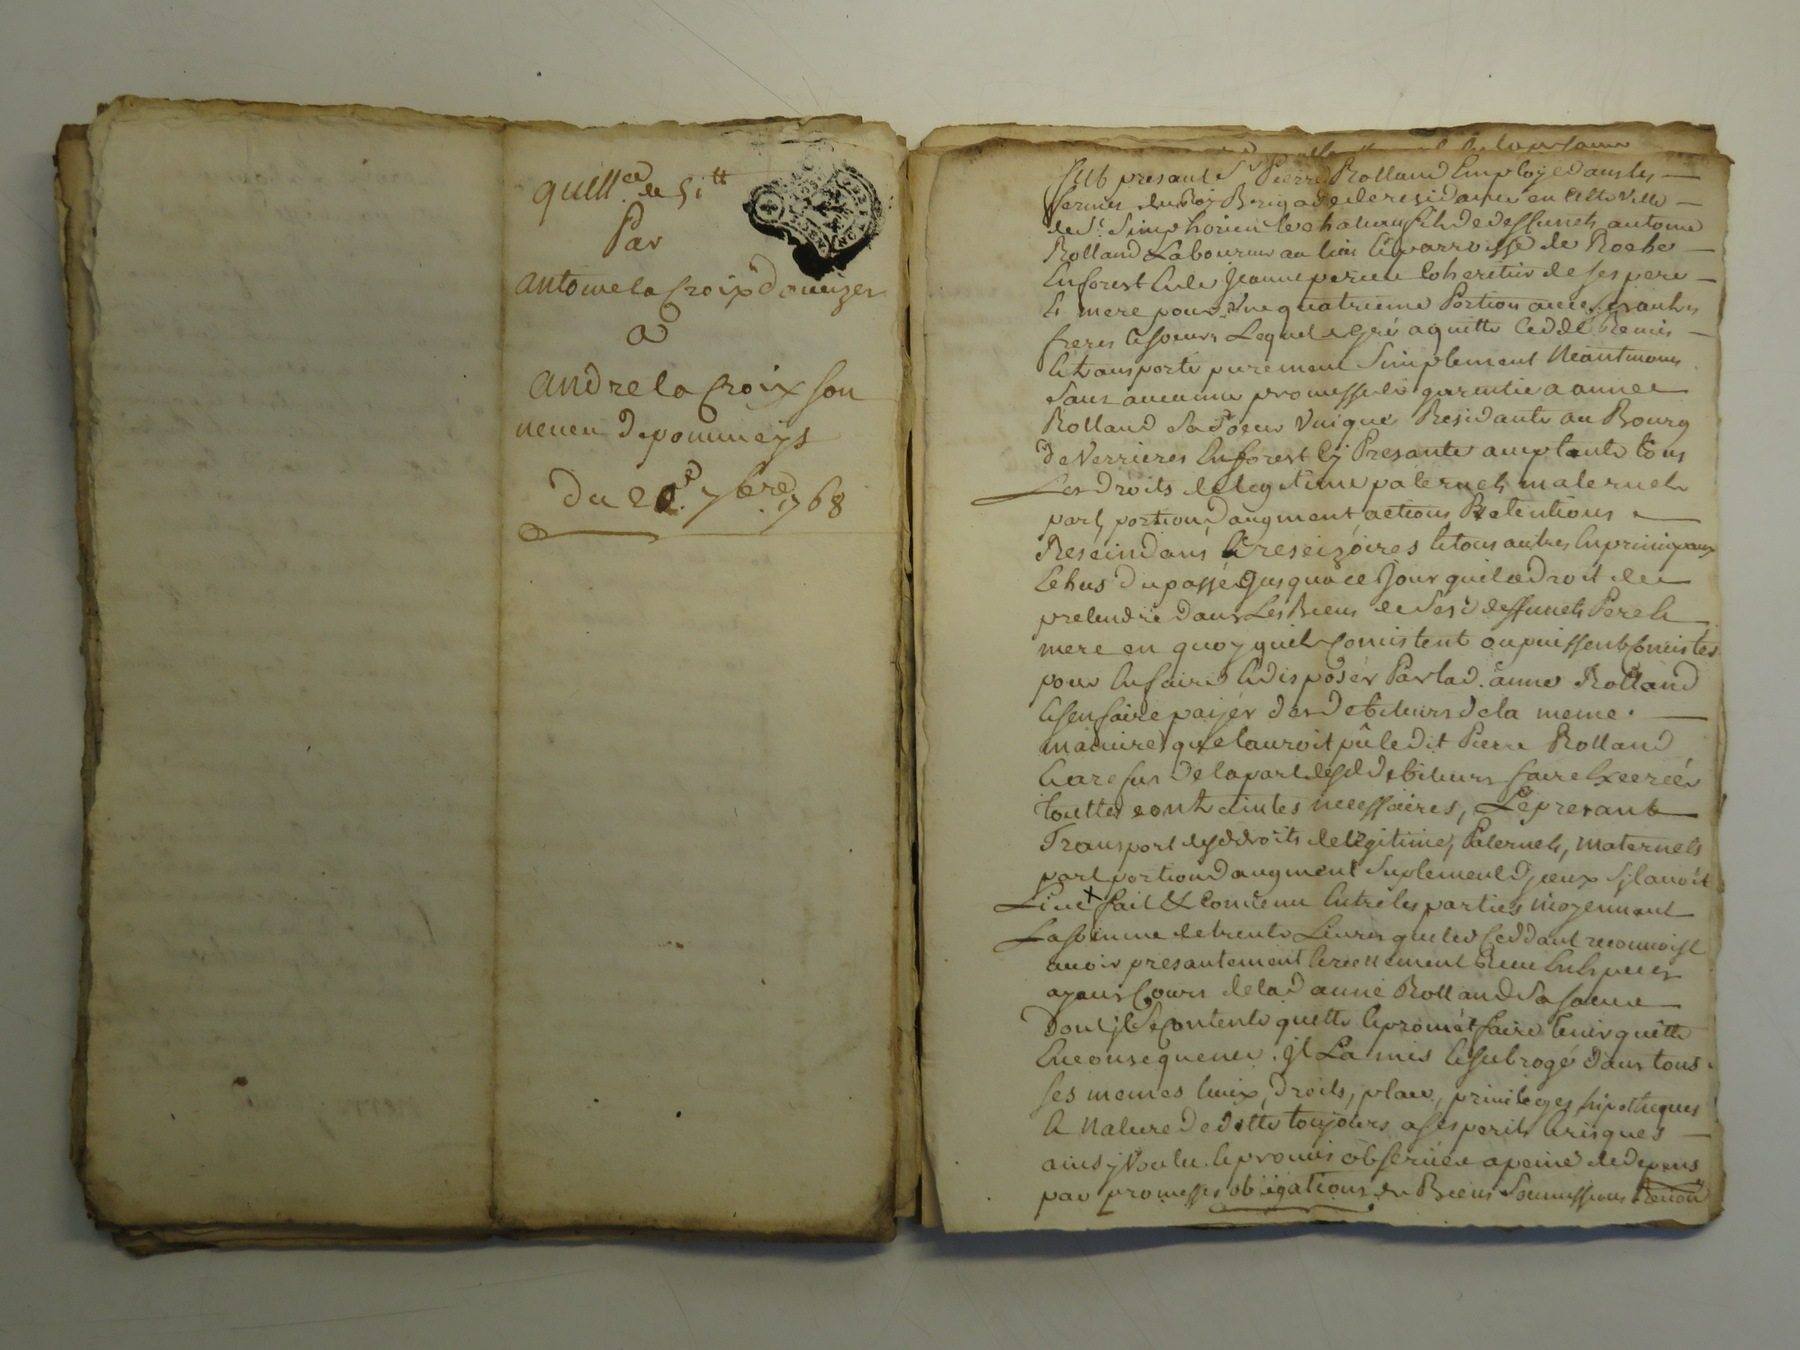 quitt.ce de 51 tt
Par
antoine la Croix d'oueizer
a
andre la Croix son
neveu de pommeys
du 2 7bre 1768
fut presant Sr Pierre Rolland Employé dans les
fermes du Roy Brigade de residance en cette ville
de St. Simphorien le chateau fils de deffunct antoine
Rolland Laboureur au lieu & parroisse de Roche
En forest & de Jeanne perieu coheretier de ses pere
& mere pour une quatrieme Portion avec ses autres
freres & soeurs Lequel de gré a quitté ceddé Remis
& transporté purement simplement Neantmoins
sans aucune promesse de garentie a annee
Rolland Sa Soeur Residante au Bourg
de Verrieres En forest Cy Presante acceptante tous
Les Droits de legitime paternels maternels
part, portion d'augment actions Retentions
Rescindans & rescizoires & tous autres En principaux
& chus du passé Jusqua ce Jour quil a Droit de
pretendre dans Les Biens de Sesd. deffuncts Pere &
mere en quoy quils Consistent ou puissent Consister
pour En faire & disposér Par lad. anne Rolland
& sen faire payér des Debiteurs de la meme
maniere que lauroit pû le dit Pierre Rolland
& a refus de la part desd. debiteurs faire Exercér
touttes contraintes necessaires, Le presant
Transport desd droits de legitime, Paternels, maternels
part portion d'augment Suplement dyceux Sy lavoit
Lieu x fait & convenu Entre les parties moyennant
La somme de trente Livres que led Ceddant reconnoist
avoir presantement & reellement Recu En Especes
ayant Cours de lad anne Rolland Sa soeur
Dont jl Se Contente quitte & promét faire tenir quitte
En consequence. Jl La mis & subrogé dans tous
ses memes lieux, Droits, place, privileges hipotheques
& Nature de dette toujours a ses perils & risques
ainsy Voulu & promis obsérvér a peine de depens
par promesses obligations de Biens Soumissions Renon